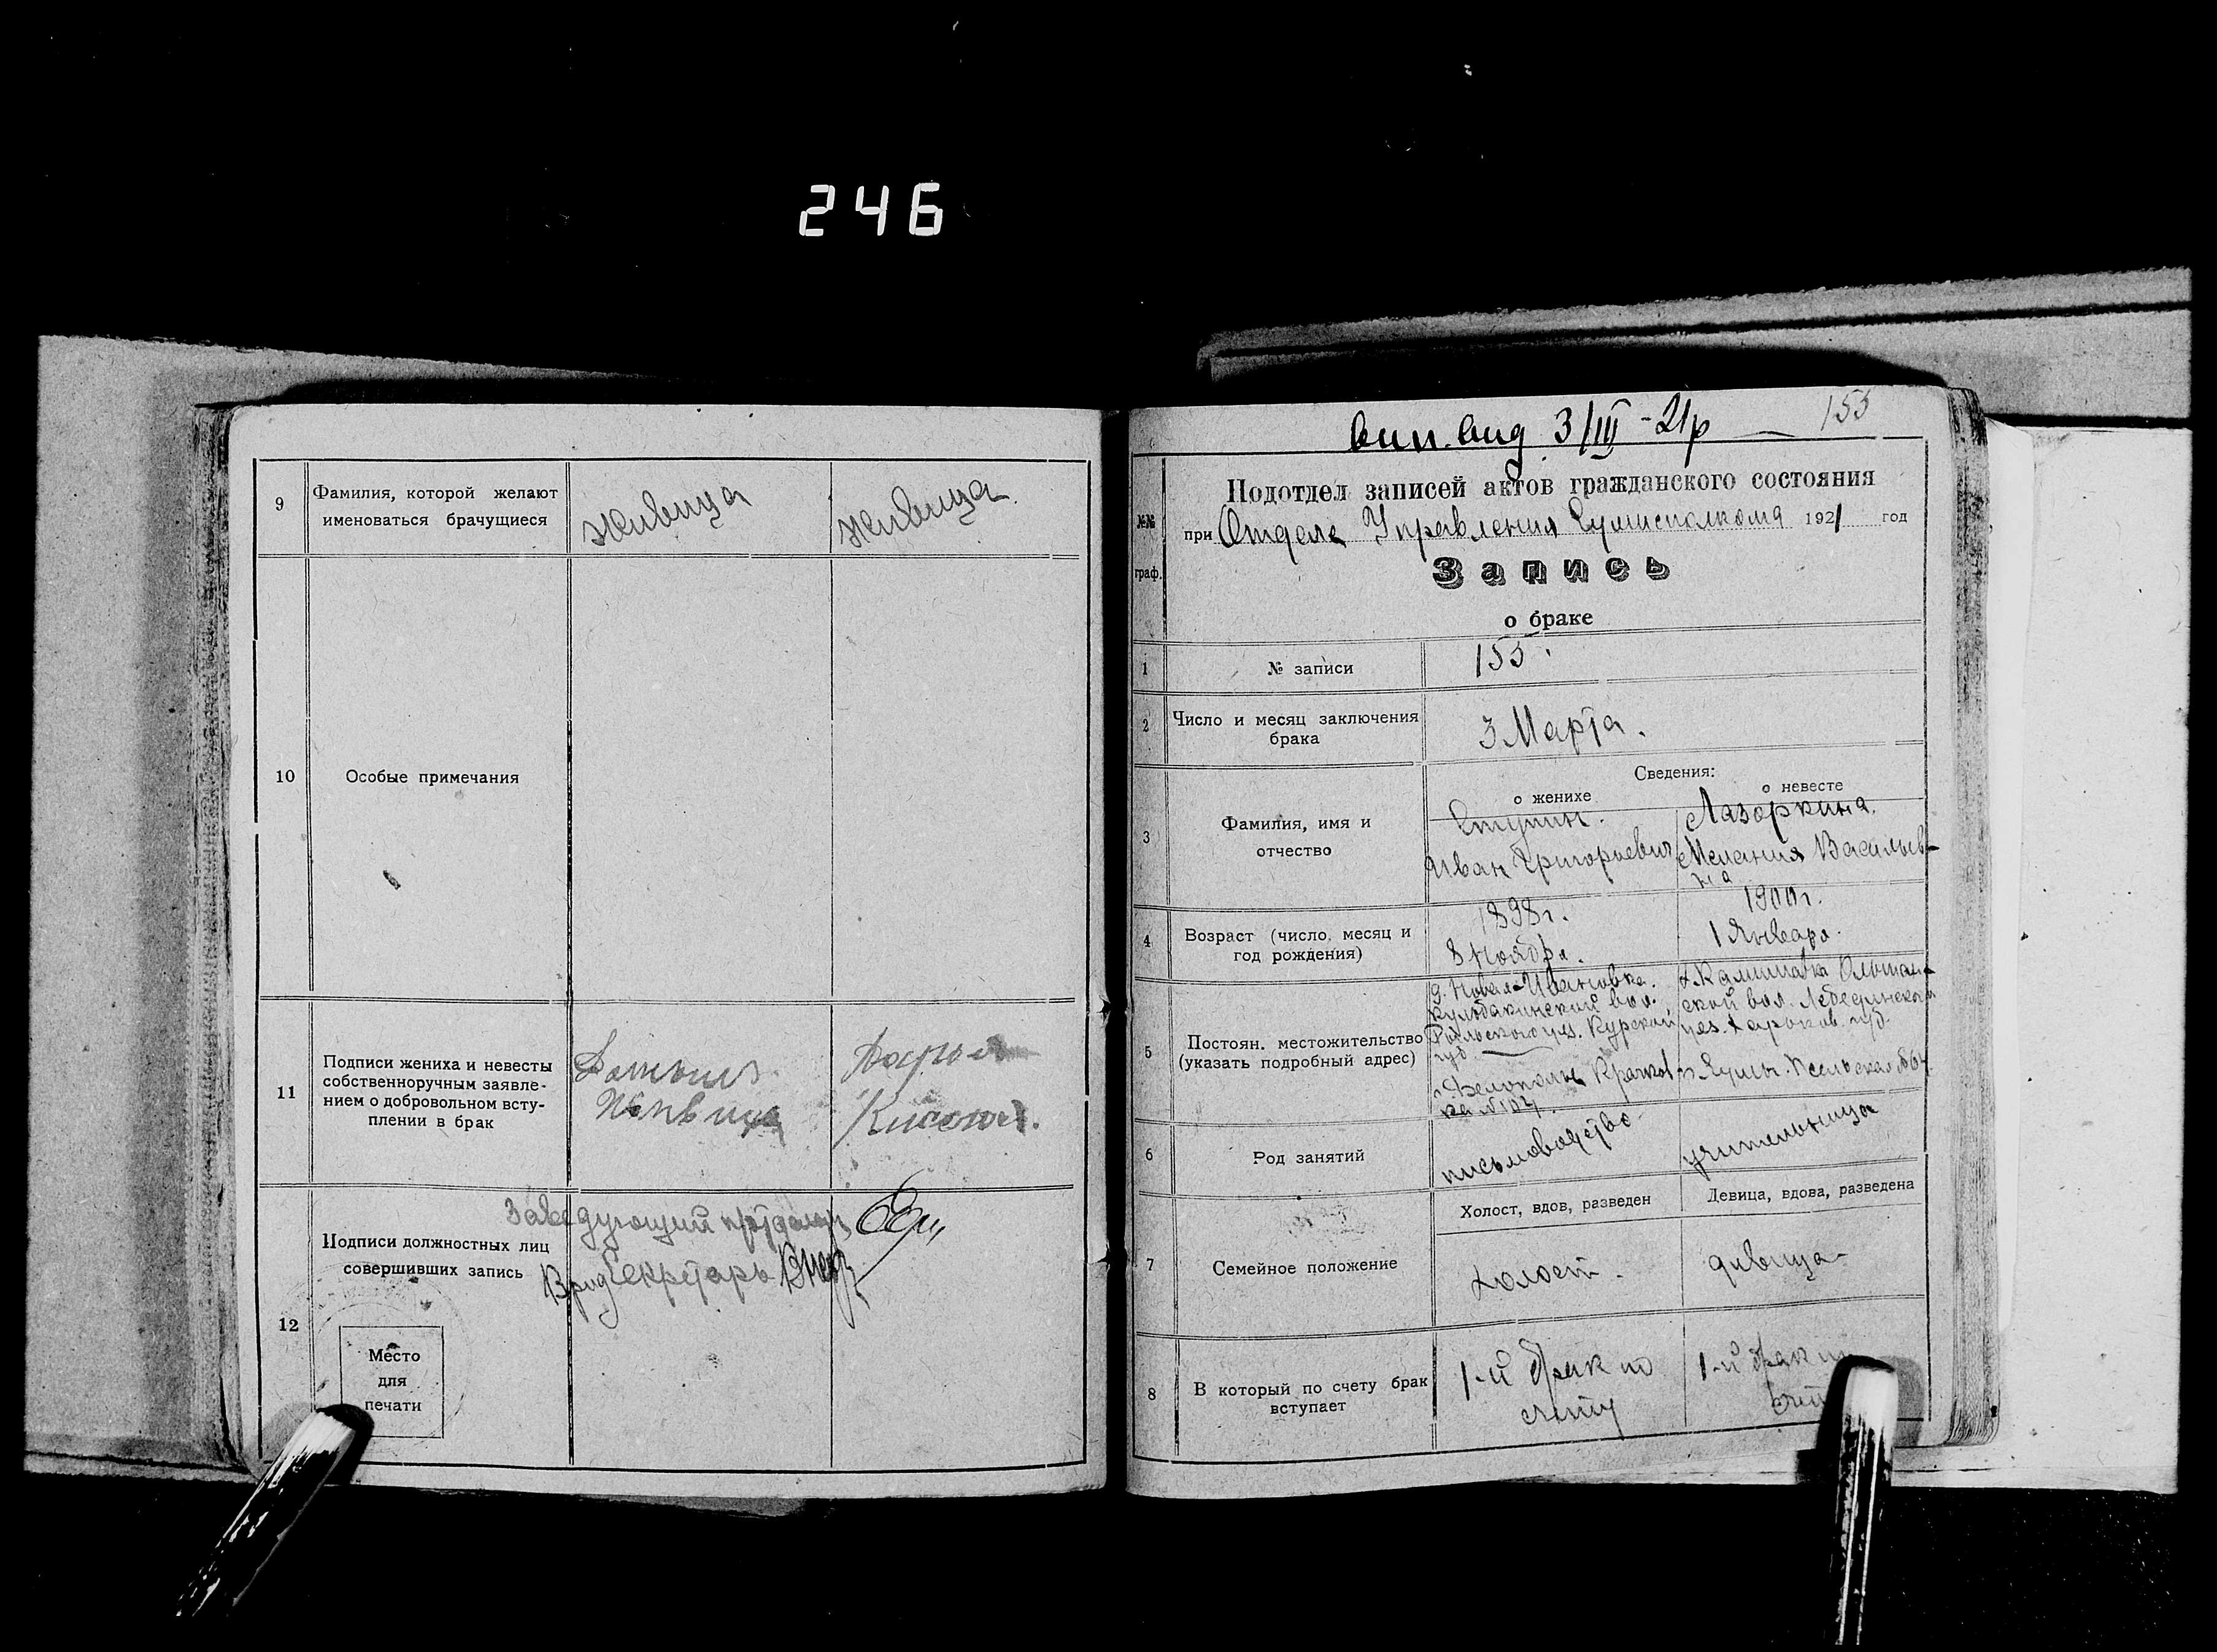 246
9
Фамилия, которой желают
именоваться брачущиеся
Живица
Живица
10
Особые примечания
11
Подписи жениха и невесты
собственноручным заявле-
нием о добровольном всту-
плении в брак
12
Подписи должностных лиц
совершивших запись
Заведующий
Секретарь
Место
для
печати
вип. вид 3/III - 21р — 155
№№
граф.
Подотдел записей актов гражданского состояния
при Отделе Управления Сумисполкома 1921 год
Запись
о браке
1
№ записи
155.
2
Число и месяц заключения
брака
3 Марта.
Сведения:
о женихе
о невесте
3
Фамилия, имя и
отчество
Ступин.
Иван Григорьевич
Лазоркина.
Мелания Васильев-
на
4
Возраст (число, месяц и
год рождения)
1898 г.
8 Ноября.
1900 г.
1 Января.
5
Постоян. местожительство
(указать подробный адрес)
д. Новая-Ивановка.
Кульбакинской вол.
Рыльского уез. Курской
губ.
г. Белополье
с. Камышавка Ольшан-
ской вол. Лебединского
уез. Харьков. губ.
г. Сумы. Псельская №
6
Род занятий
письмоводство
учительница
7
Семейное положение
Холост, вдов, разведен
Девица, вдова, разведена
холост.
дивица
8
В который по счету брак
вступает
1-й брак по
счету
1-й брак